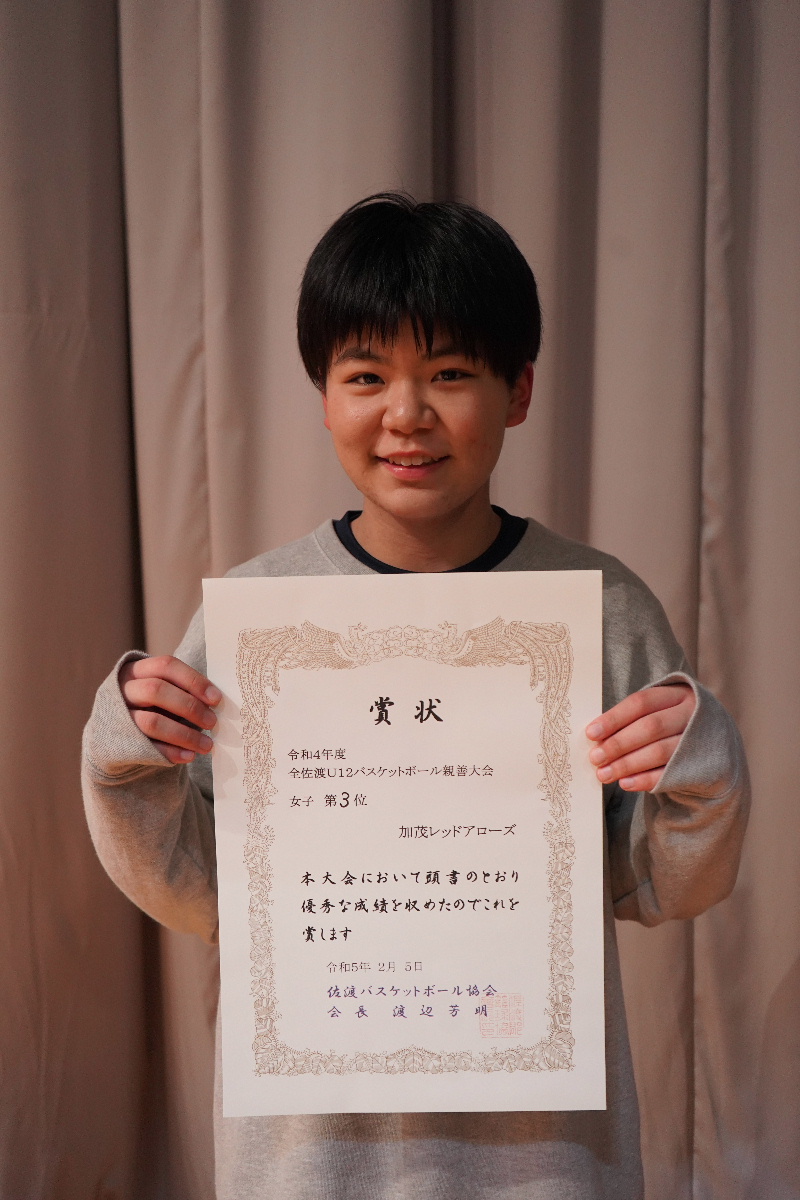 賞状
令和4年度
全佐渡U12バスケットボール親善大会
女子 第3位
加茂レッドアローズ
本大会において頭書のとおり
優秀な成績を収めたのでこれを
賞します
令和5年 2月 5日
佐渡バスケットボール協会
会長 渡辺芳明